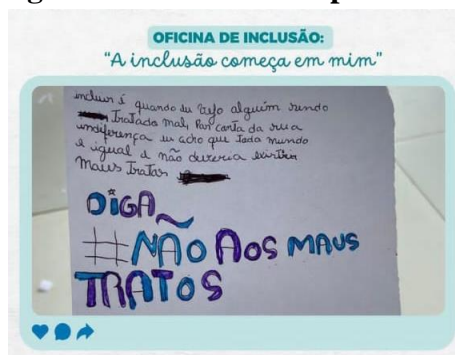 OFICINA DE INCLUSÃO:
"A inclusão começa em mim"
incluir é quando eu vejo alguém sendo
Tratada mal, Por conta da sua
indiferença eu acho que Toda mundo
é igual e não deveria existir
Maus Tratos
DiGA
#NÃO AOS MAUS
TRATOS